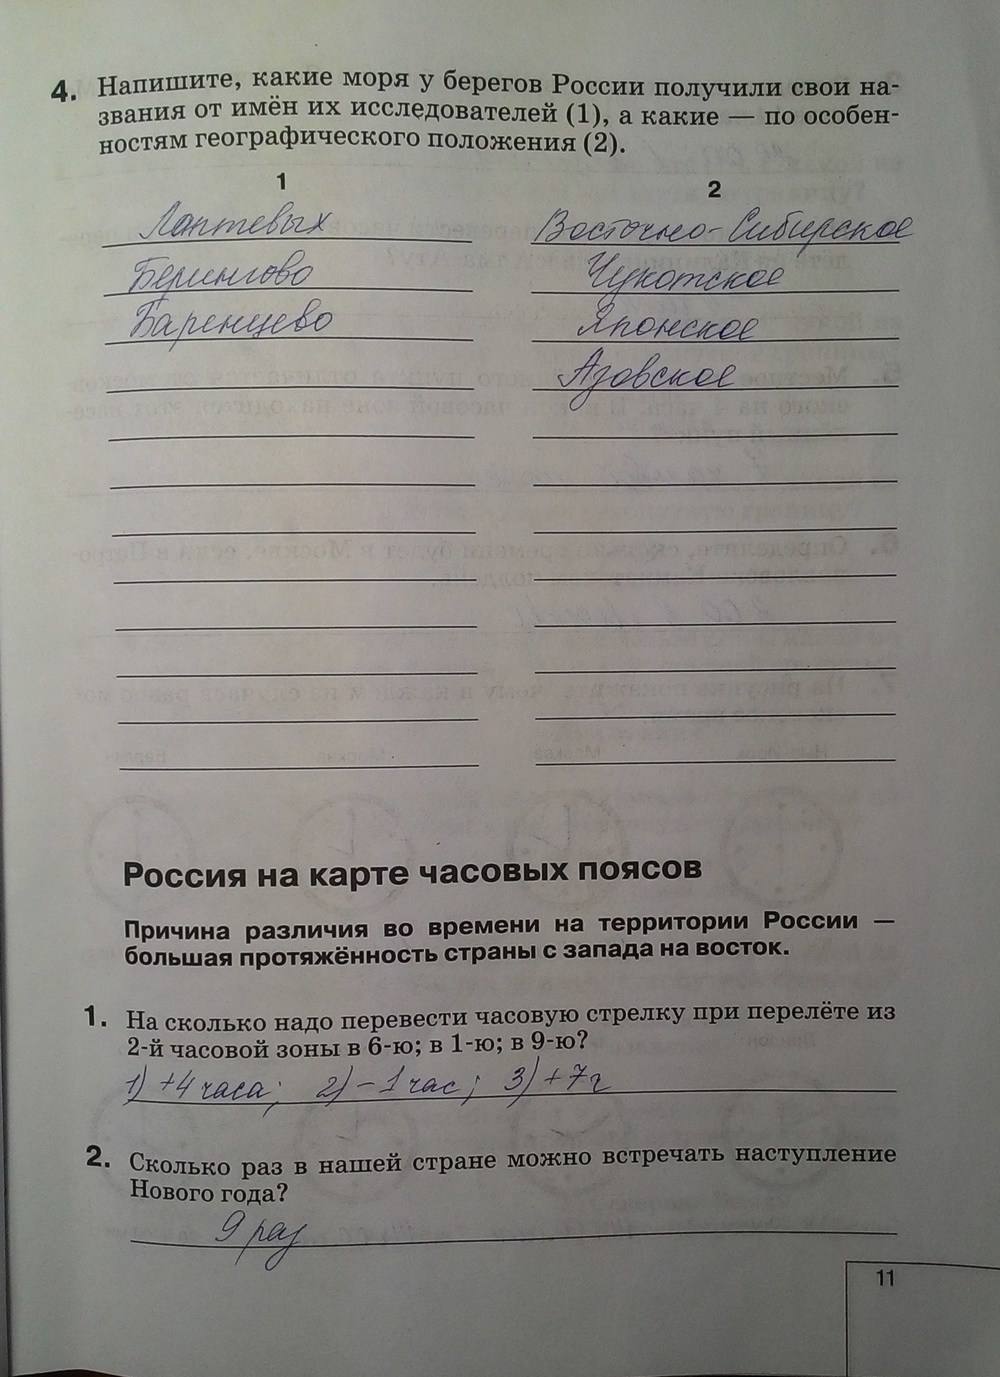 4. Напишите, какие моря у берегов России получили свои на-
звания от имён их исследователей (1), а какие — по особен-
ностям географического положения (2).
1
2
Лаптевых
Восточно-Сибирское
Берингово
Чукотское
Баренцево
Японское
Азовское
Россия на карте часовых поясов
Причина различия во времени на территории России —
большая протяжённость страны с запада на восток.
1. На сколько надо перевести часовую стрелку при перелёте из
2-й часовой зоны в 6-ю; в 1-ю; в 9-ю?
1) +4 часа; 2) -1 час; 3) +7 г
2. Сколько раз в нашей стране можно встречать наступление
Нового года?
9 раз
11